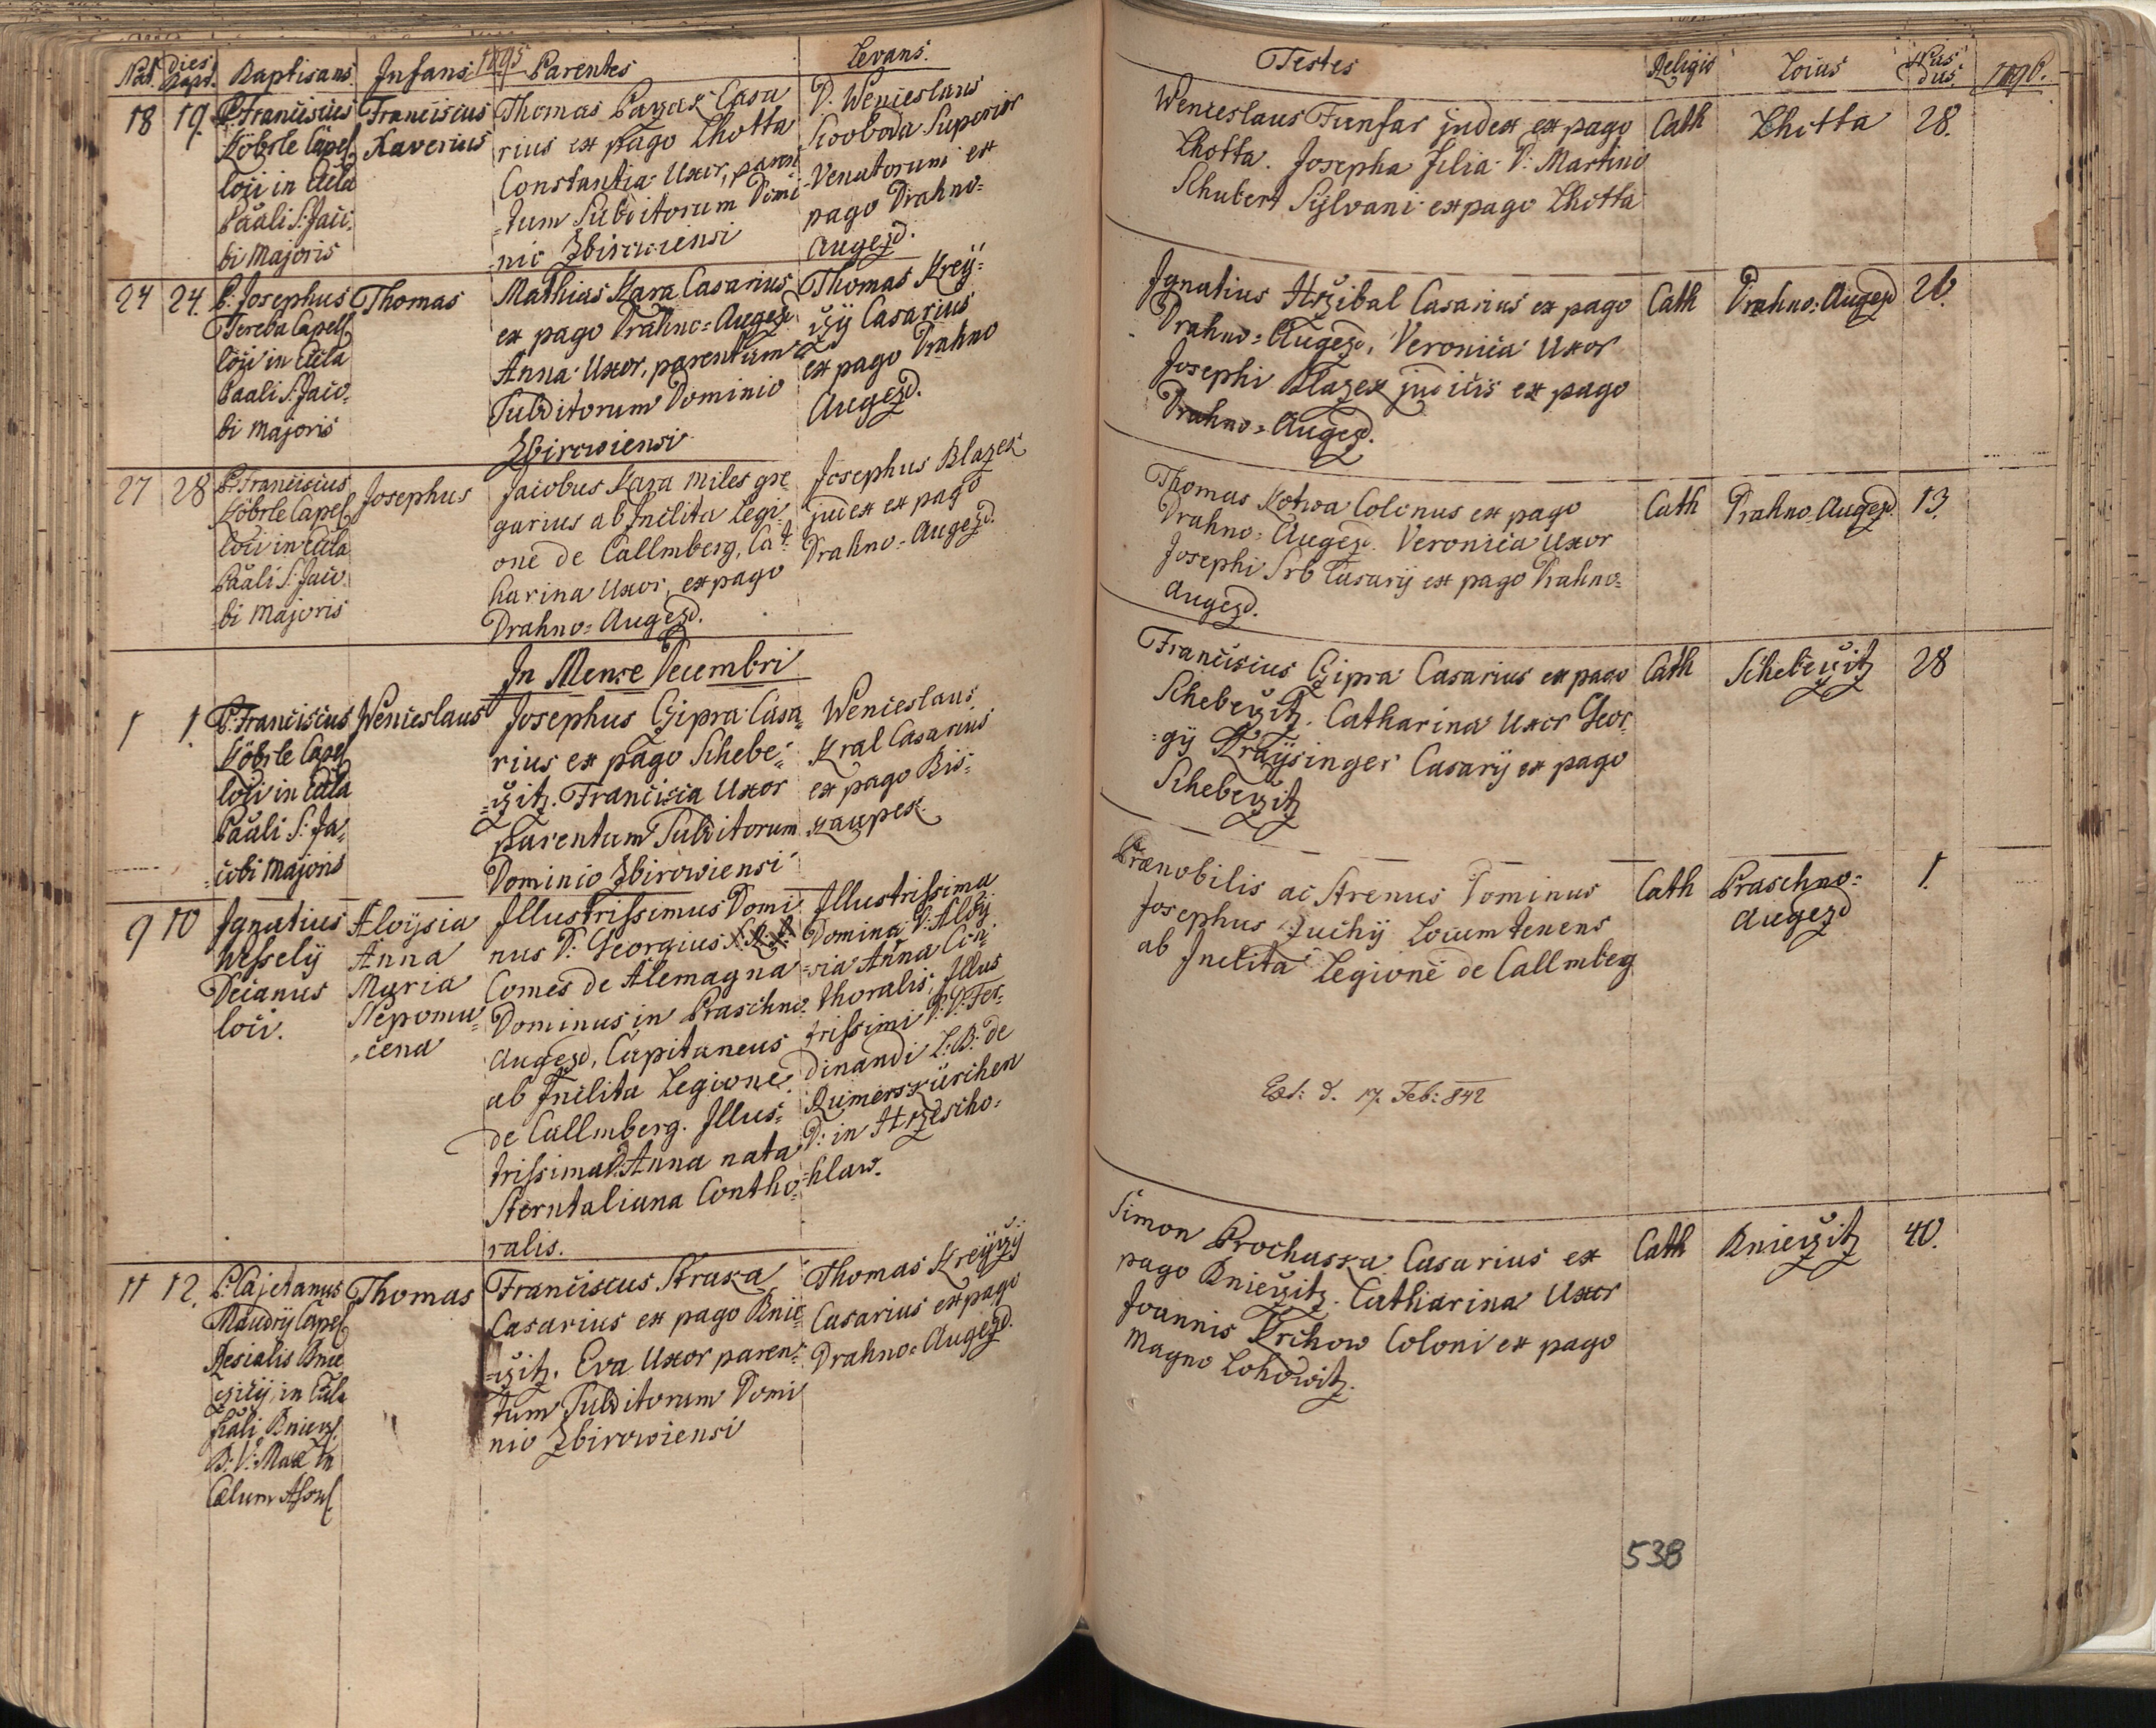 Nat. dies Bapt. Baptisans Infans 1795 Parentes Levans.
18 19. P. Franciscus
Köbrle Capel.
loci in Eccla
Paali S: Jaco-
bi Majoris
Franciscus
Xaverius
Thomas Casa
rius ex pago Lhotta
Constantia Uxor, paren
tum Subditorum Domi-
nio Zbirowiensi
D. Wenceslaus
Swoboda Superior
Venatorum ex
pago Drahno-
Augezd.
24 24. P. Josephus
Tereba Capell
loci in Eccla
Paali S: Jaco-
bi Majoris
Thomas
Mathias Kara Casarius
ex pago Drahno-Augezd
Anna Uxor, parentum
Subditorum Dominio
Zbirowiensi
Thomas Kreÿ-
czÿ Casarius
ex pago Drahno
Augezd.
27 28 P. Franciscus
Köbrle Capel
loci in Eccla
Paali S: Jaco
bi Majoris
Josephus
Jacobus Kara Miles gre
garius ab Inclita Legi-
one de Callmberg, Cat-
harina Uxor, ex pago
Drahno-Augezd.
Josephus Blazek
judex ex pago
Drahno-Augezd.
In Mense Decembri
1 1. P. Franciscus
Köbrle Capel
loci in Eccla
Paali S: Ja-
cobi Majoris
Wenceslaus
Josephus Czipra Casa-
rius ex pago Schebe-
czitz. Francisca Uxor
Parentum Subditorum
Dominio Zbirowiensi
Wenceslaus
Kral Casarius
ex pago Bis-
kaupek
9 10 Ignatius
Wessely
Decanus
loci.
Aloÿsia
Anna
Maria
Nepomu-
cena
Illustrissimus Domi
nus D. Georgius
Comes de Alemagna
Dominus in Praschno-
Augezd, Capitaneus
ab Inclita Legione
de Callmberg. Illus-
trissima D. Anna nata
Sterntaliana Contho-
ralis.
Illustrissima
Domina D: Aloÿ
sia Anna Con-
thoralis, Illus
trissimi D: D: Fer-
dinandi L: B: de
Rumerskürchen
D: in Hrzescho-
hlaw.
11 12. P. Cajetanus
Maudrÿ Capel
Resialis Bnie
cziczij in Eccla
fiali Bniecz.
B: V: Mariæ in
Cælum Assu
Thomas
Franciscus Straka
Casarius ex pago Bnie-
czitz. Eva Uxor paren-
tum Subditorum Domi
nio Zbirowiensi
Thomas Kreÿczÿ
Casarius ex pago
Drahno-Augezd.
Testes Religio Locus Nrus dus. 1796.
Wenceslaus Funfar judex ex pago
Lhotta. Josepha filia D: Martini
Schubert Sÿlvani ex pago Lhotta
Cath Lhotta 28.
Ignatius Hrzibal Casarius ex pago
Drahno-Augezd, Veronica Uxor
Josephi Blazek judicis ex pago
Drahno-Augezd.
Cath Drahno-Augezd 26.
Thomas Kotwa Colonus ex pago
Drahno-Augezd. Veronica Uxor
Josephi Srb Casarij ex pago Drahno-
Augezd.
Cath Drahno-Augezd. 13.
Franciscus Czipra Casarius ex pago
Scheberczitz. Catharina Uxor Geor-
gij Kraÿsinger Casarij ex pago
Scheberczitz
Cath Schebeczitz 28
Prænobilis ac Strenus Dominus
Josephus Zuchÿ Locumtenens
ab Inclita Legione de Callmbeg
Cath Praschno-
Augezd
1.
Ext: d. 17. Feb: 842
Simon Prochaska Casarius ex
pago Bnieczitz. Catharina Uxor
Joannis Krchow Coloni ex pago
Magno Lohowitz.
Cath Bnieczitz 40.
538